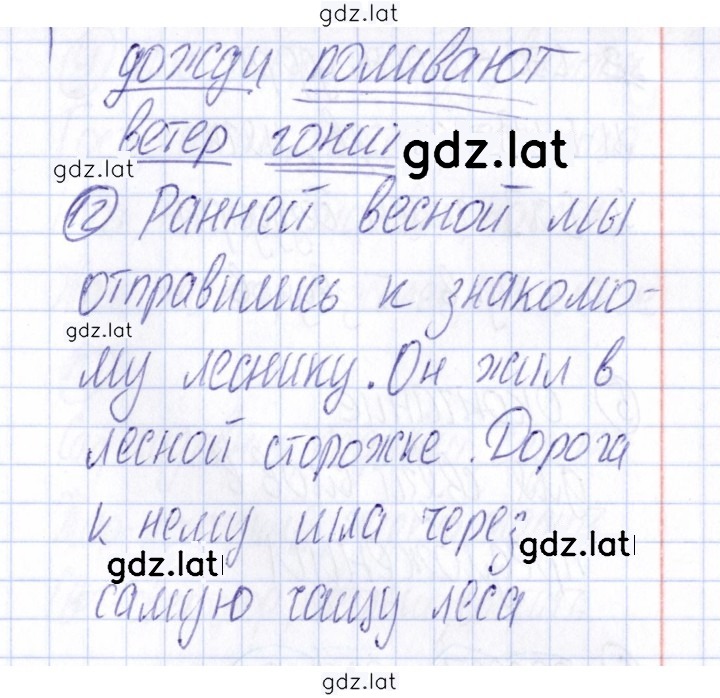 gdz.lat
дожди поливают
ветер гонит
gdz.lat
gdz.lat
12 Ранней весной мы
отправились к знакомо-
gdz.lat
му леснику. Он жил в
лесной сторожке. Дорога
к нему шла через
gdz.lat
gdz.lat
самую чащу леса
gdz.lat